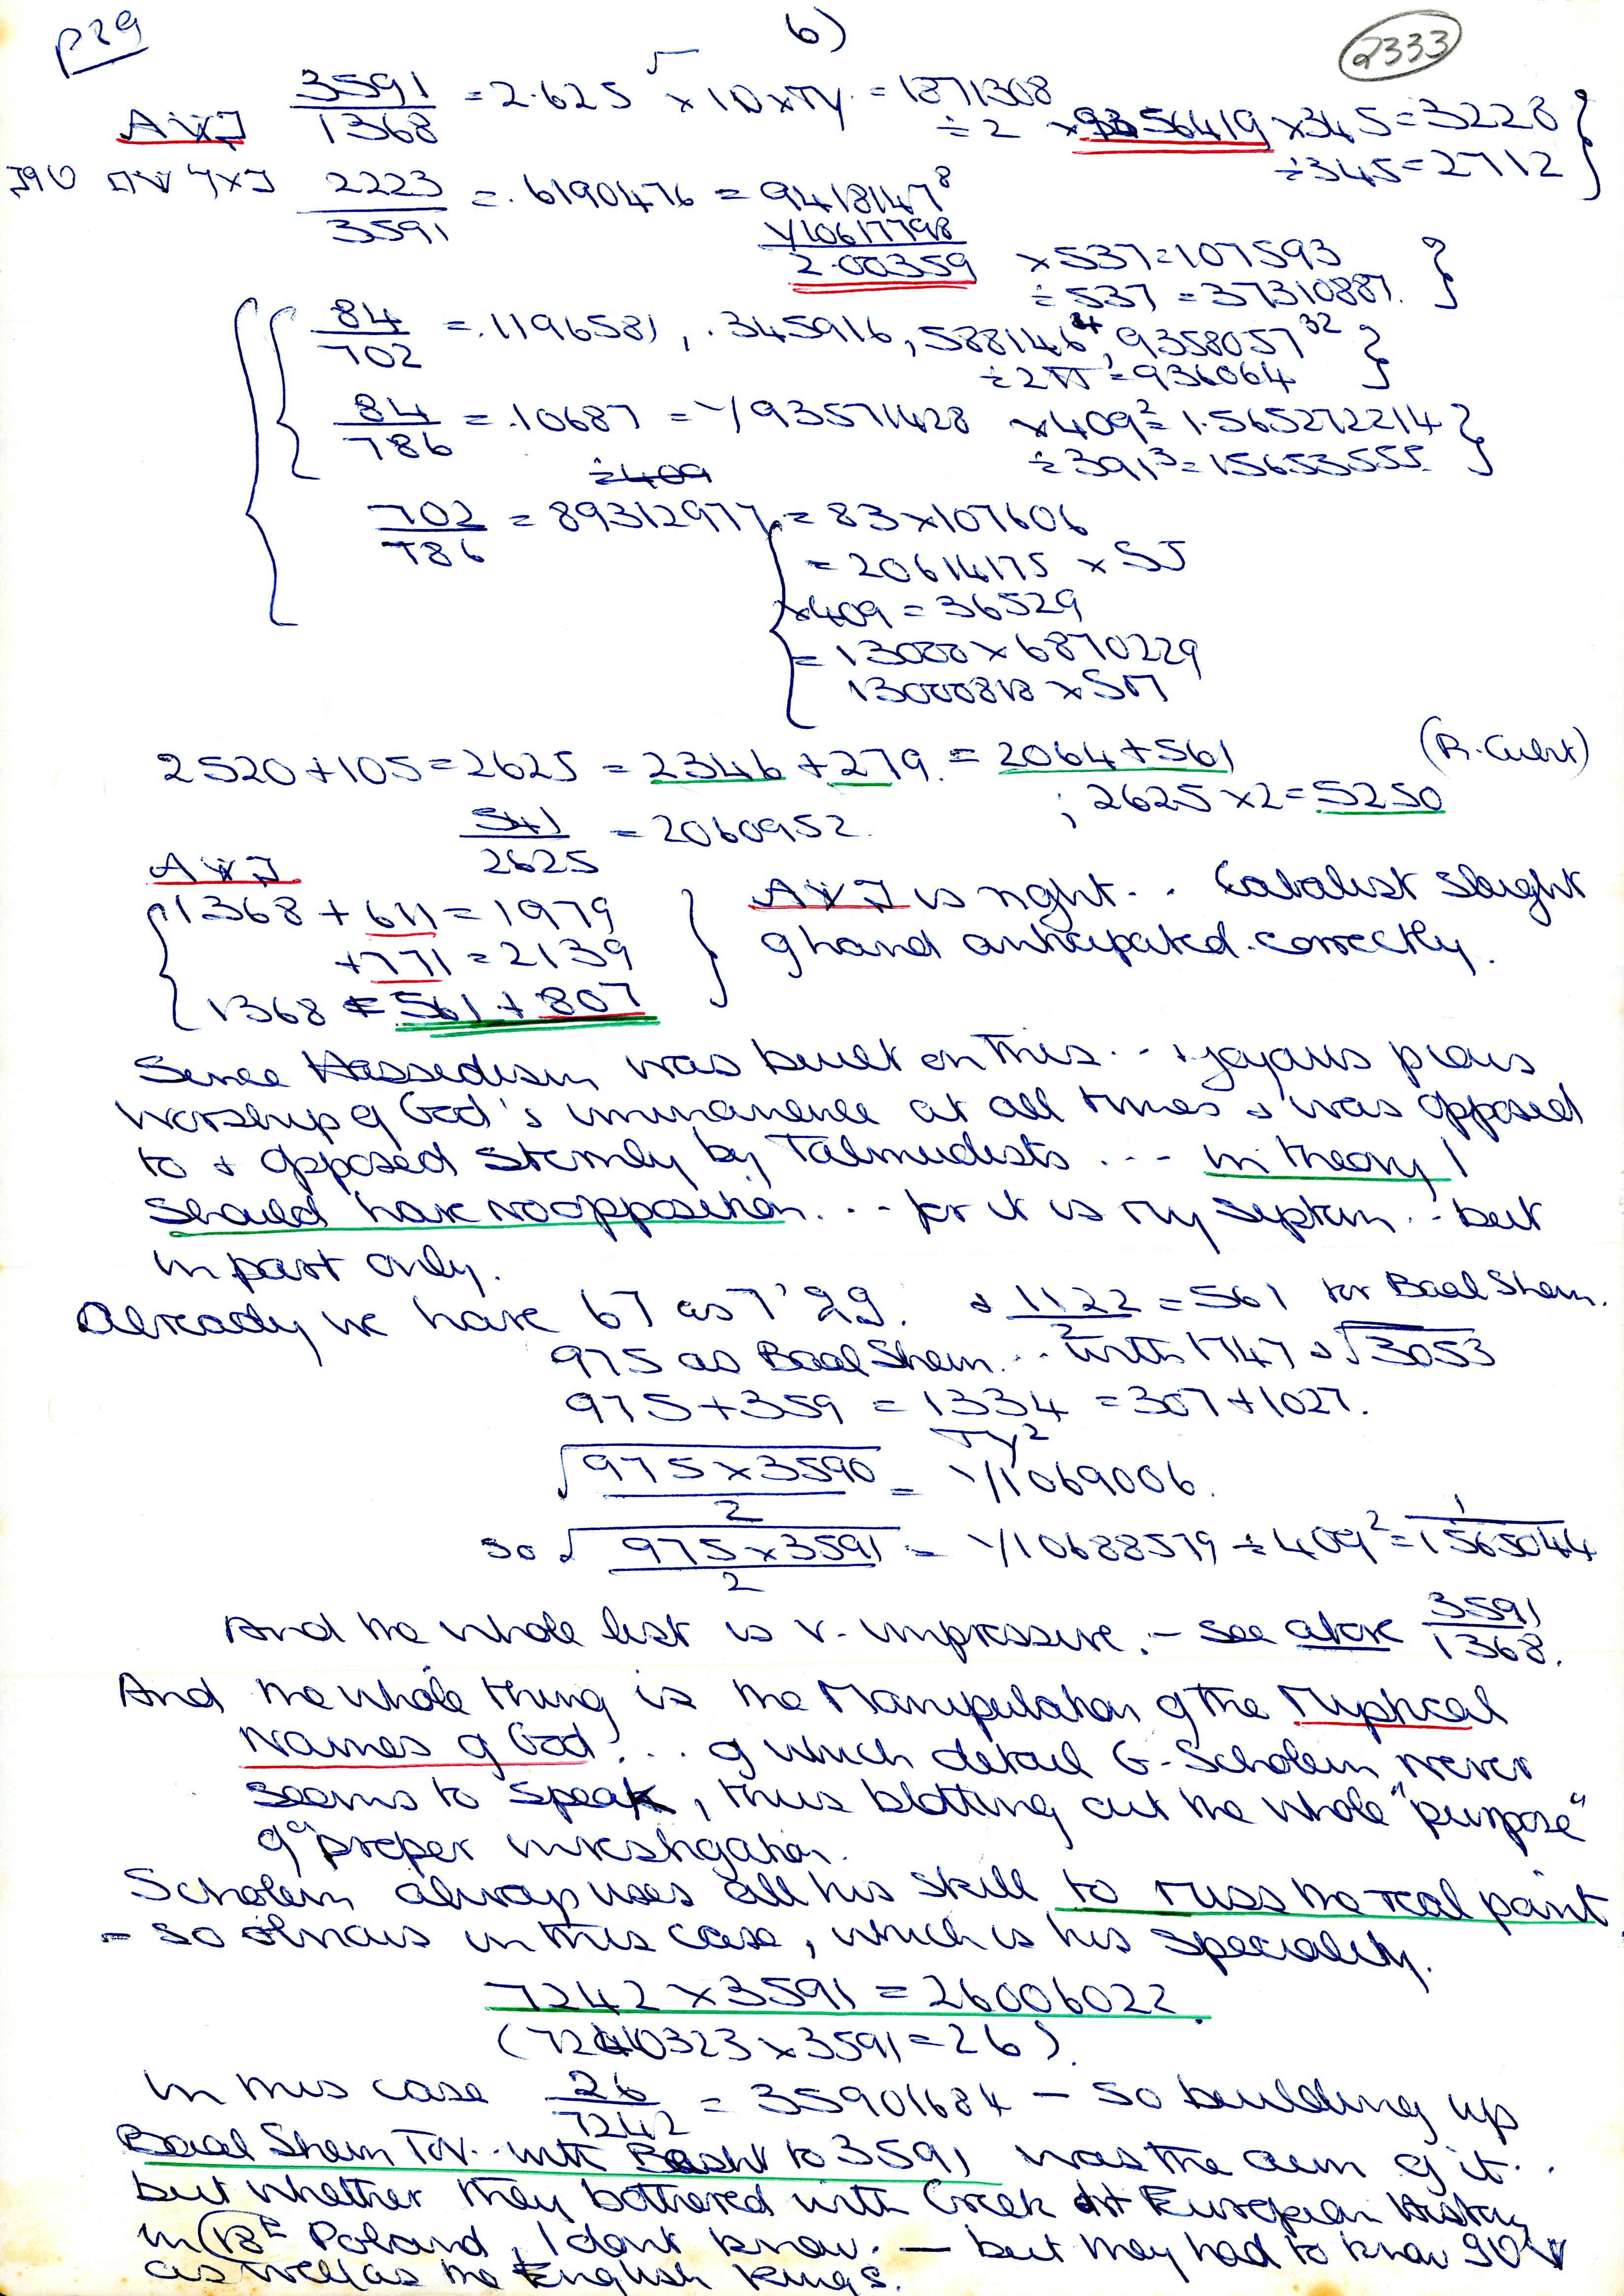 P29
6)
2333
3591/1368 = 2.625 √ × 10 × TY = 1871308
÷2 × 9356419 × 345 = 3228
÷345 = 2712
2223/3591 = .6190476 = 9418147⁸
Y10617798
2.00359 × 537 = 107593
÷ 537 = 37310887.
84/702 = .1196581, .345916, 588146⁴, 9358057³²
÷2π = 936064
84/786 = .10687 = Y93571428 × 409² = 1.565272214
÷ 391³ = 15653555
÷409
702/786 = 89312977 = 83 × 107606
= 20614175 × SJ
×409 = 36529
= 13000 × 6870229
13000818 × SM
2520 + 105 = 2625 = 2346 + 279. = 2064 + 561 (R. Cubit)
; 2625 × 2 = 5250
541/2625 = 2060952.
1368 + 611 = 1979
+ 771 = 2139
1368 = 561 + 807
is right .. Cabalist Slaight
of hand anticipated correctly.
Since Hassedism was built on this ... + joyous pious
worship of God's immanence at all times & was opposed
to & opposed sternly by Talmudists ... in theory I
should have no opposition ... for it is my system .. but
in part only.
Already we have 67 as 7' 29. & 1122/2 = 561 for Baal Shem.
975 as Baal Shem ... with 1747 & √3053
975 + 359 = 1334 = 307 + 1027.
TY²
√975 × 3590/2 = Y1069006.
so √975 × 3591/2 = Y10688579 ÷ 409² = 1/1565044
And the whole list is v. impressive. - see above 3591/1368.
And the whole thing is the Manipulation of the Mystical
Names of God ... of which detail G. Scholem never
seems to speak, thus blotting out the whole "purpose"
of "proper investigation.
Scholem always uses all his skill to miss the real point
- so obvious in this case, which is his speciality.
7242 × 3591 = 26006022.
(7240323 × 3591 = 26).
In this case 26/7242 = 35901684 - so building up
Baal Shem Tov .. with Besht to 3591 was the aim of it ..
but whether they bothered with Greek & European History
in 18ᵗʰ Poland, I dont know. — but they had to know
as well as the English Kings.